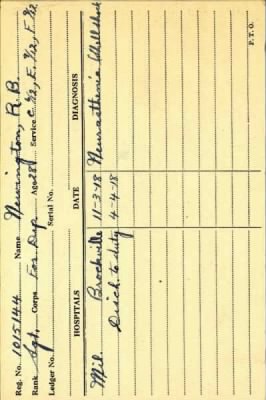 Reg. No. 1015144 Name Newington, R. B.
Rank Sgt. Corps For. Dep. Age 28 Service C. 7/12, E. 7/12, F. 7/12
Ledger No. Serial No.
HOSPITALS DATE DIAGNOSIS
Mil. Brockville 11-3-18 Neurasthenia Shell shock
Disch. to duty 4-4-18
P. T. O.